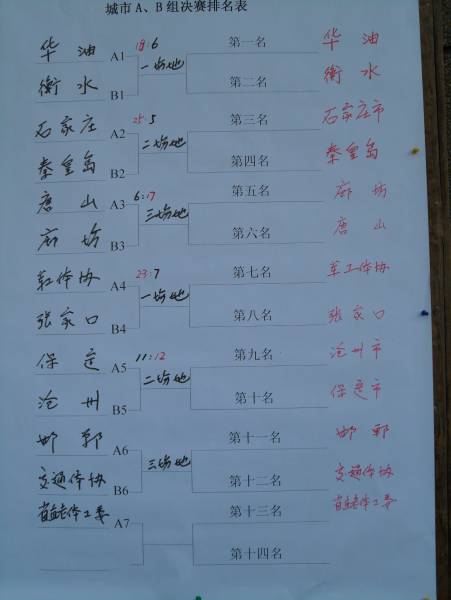 城市A、B组决赛排名表
华油 A1 18:6 第一名 华油
一场地
衡水 B1 第二名 衡水
石家庄 A2 25:5 第三名 石家庄市
二场地
秦皇岛 B2 第四名 秦皇岛
唐山 A3 6:17 第五名 廊坊
三场地
廊坊 B3 第六名 唐山
A4 23:7 第七名 军工体协
一场地
张家口 B4 第八名 张家口
保定 A5 11:12 第九名 沧州市
二场地
沧州 B5 第十名 保定市
邯郸 A6 第十一名 邯郸
三场地
交通体协 B6 第十二名 交通体协
A7 第十三名
第十四名